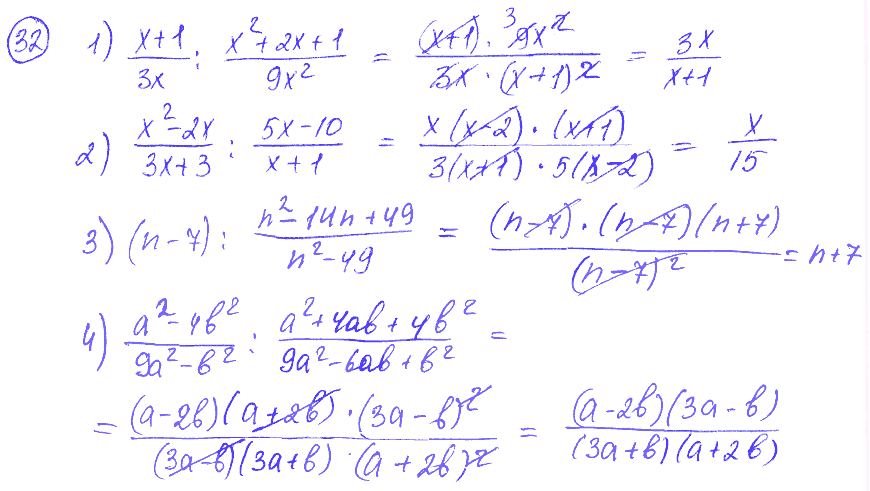 32 1) (x+1)/(3x) : (x²+2x+1)/(9x²) = ((x+1) · ³9x²)/(3x · (x+1)²) = 3x/(x+1)
2) (x²-2x)/(3x+3) : (5x-10)/(x+1) = (x(x-2) · (x+1))/(3(x+1) · 5(x-2)) = x/15
3) (n-7) : (n²-14n+49)/(n²-49) = ((n-7) · (n-7)(n+7))/((n-7)²) = n+7
4) (a²-4b²)/(9a²-b²) : (a²+4ab+4b²)/(9a²-6ab+b²) =
= ((a-2b)(a+2b) · (3a-b)²)/((3a-b)(3a+b) · (a+2b)²) = ((a-2b)(3a-b))/((3a+b)(a+2b))